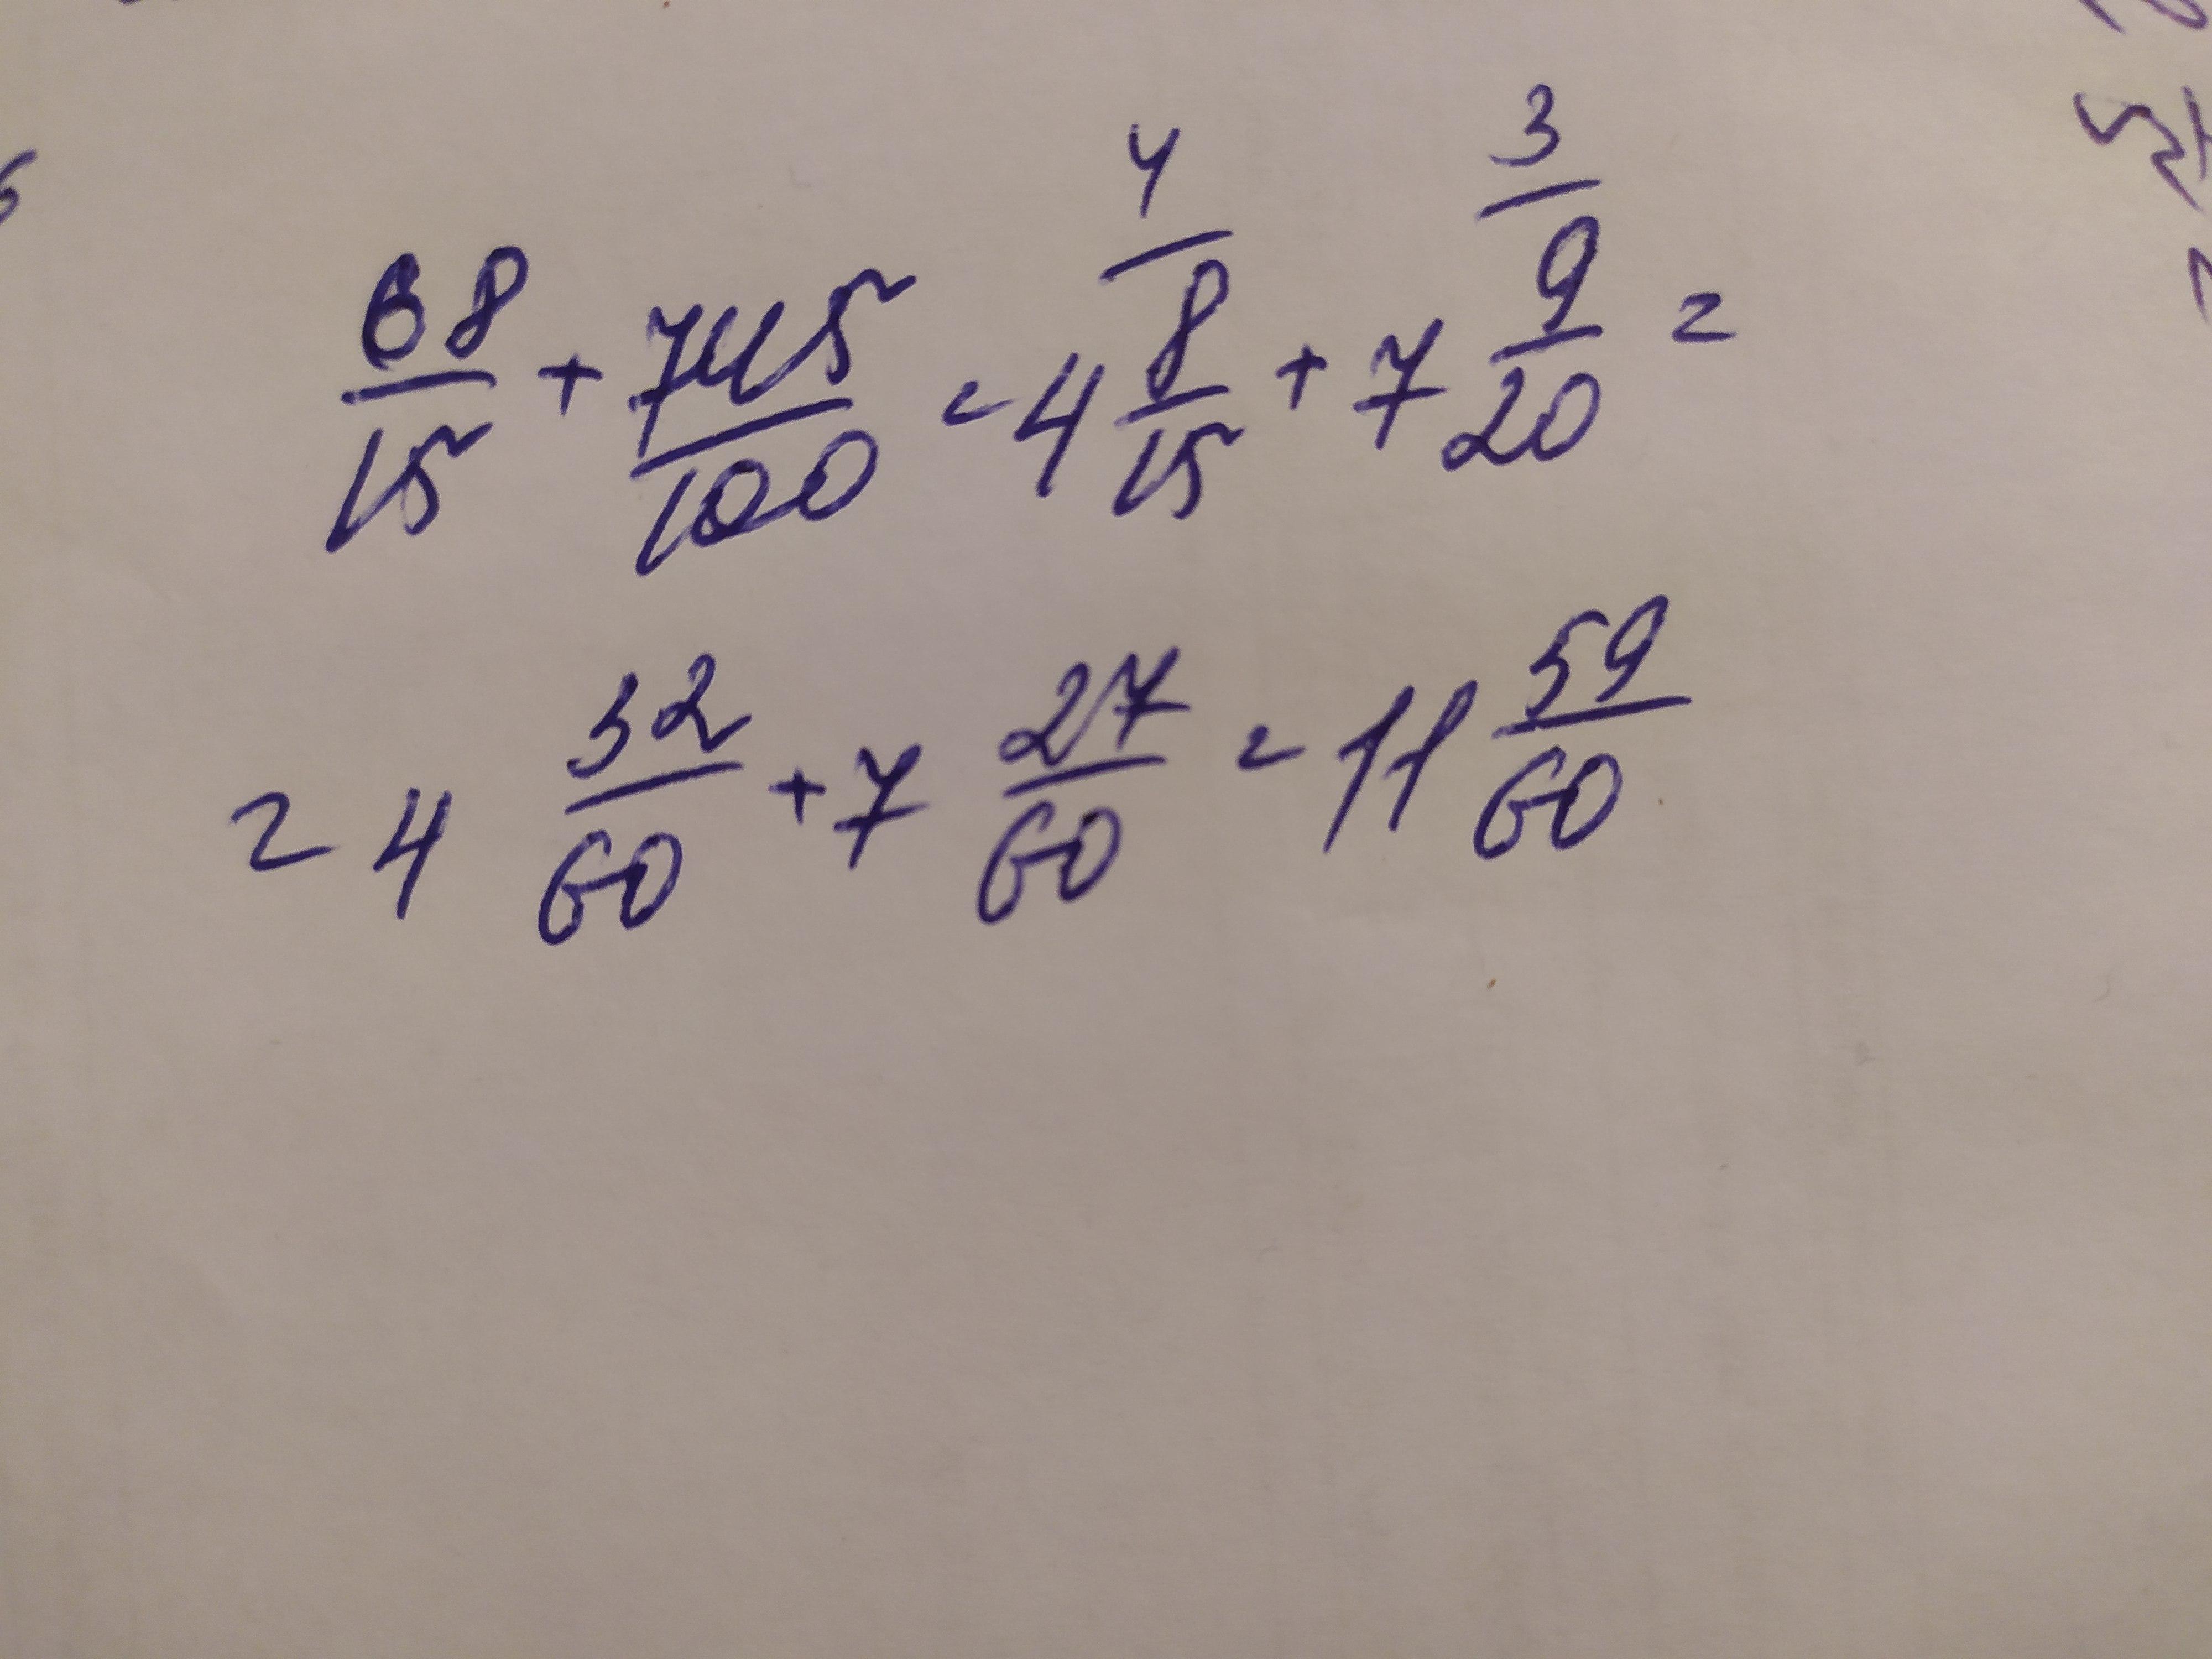 68/15 + 745/100 = 4 8/15 (4) + 7 9/20 (3) =
= 4 32/60 + 7 27/60 = 11 59/60